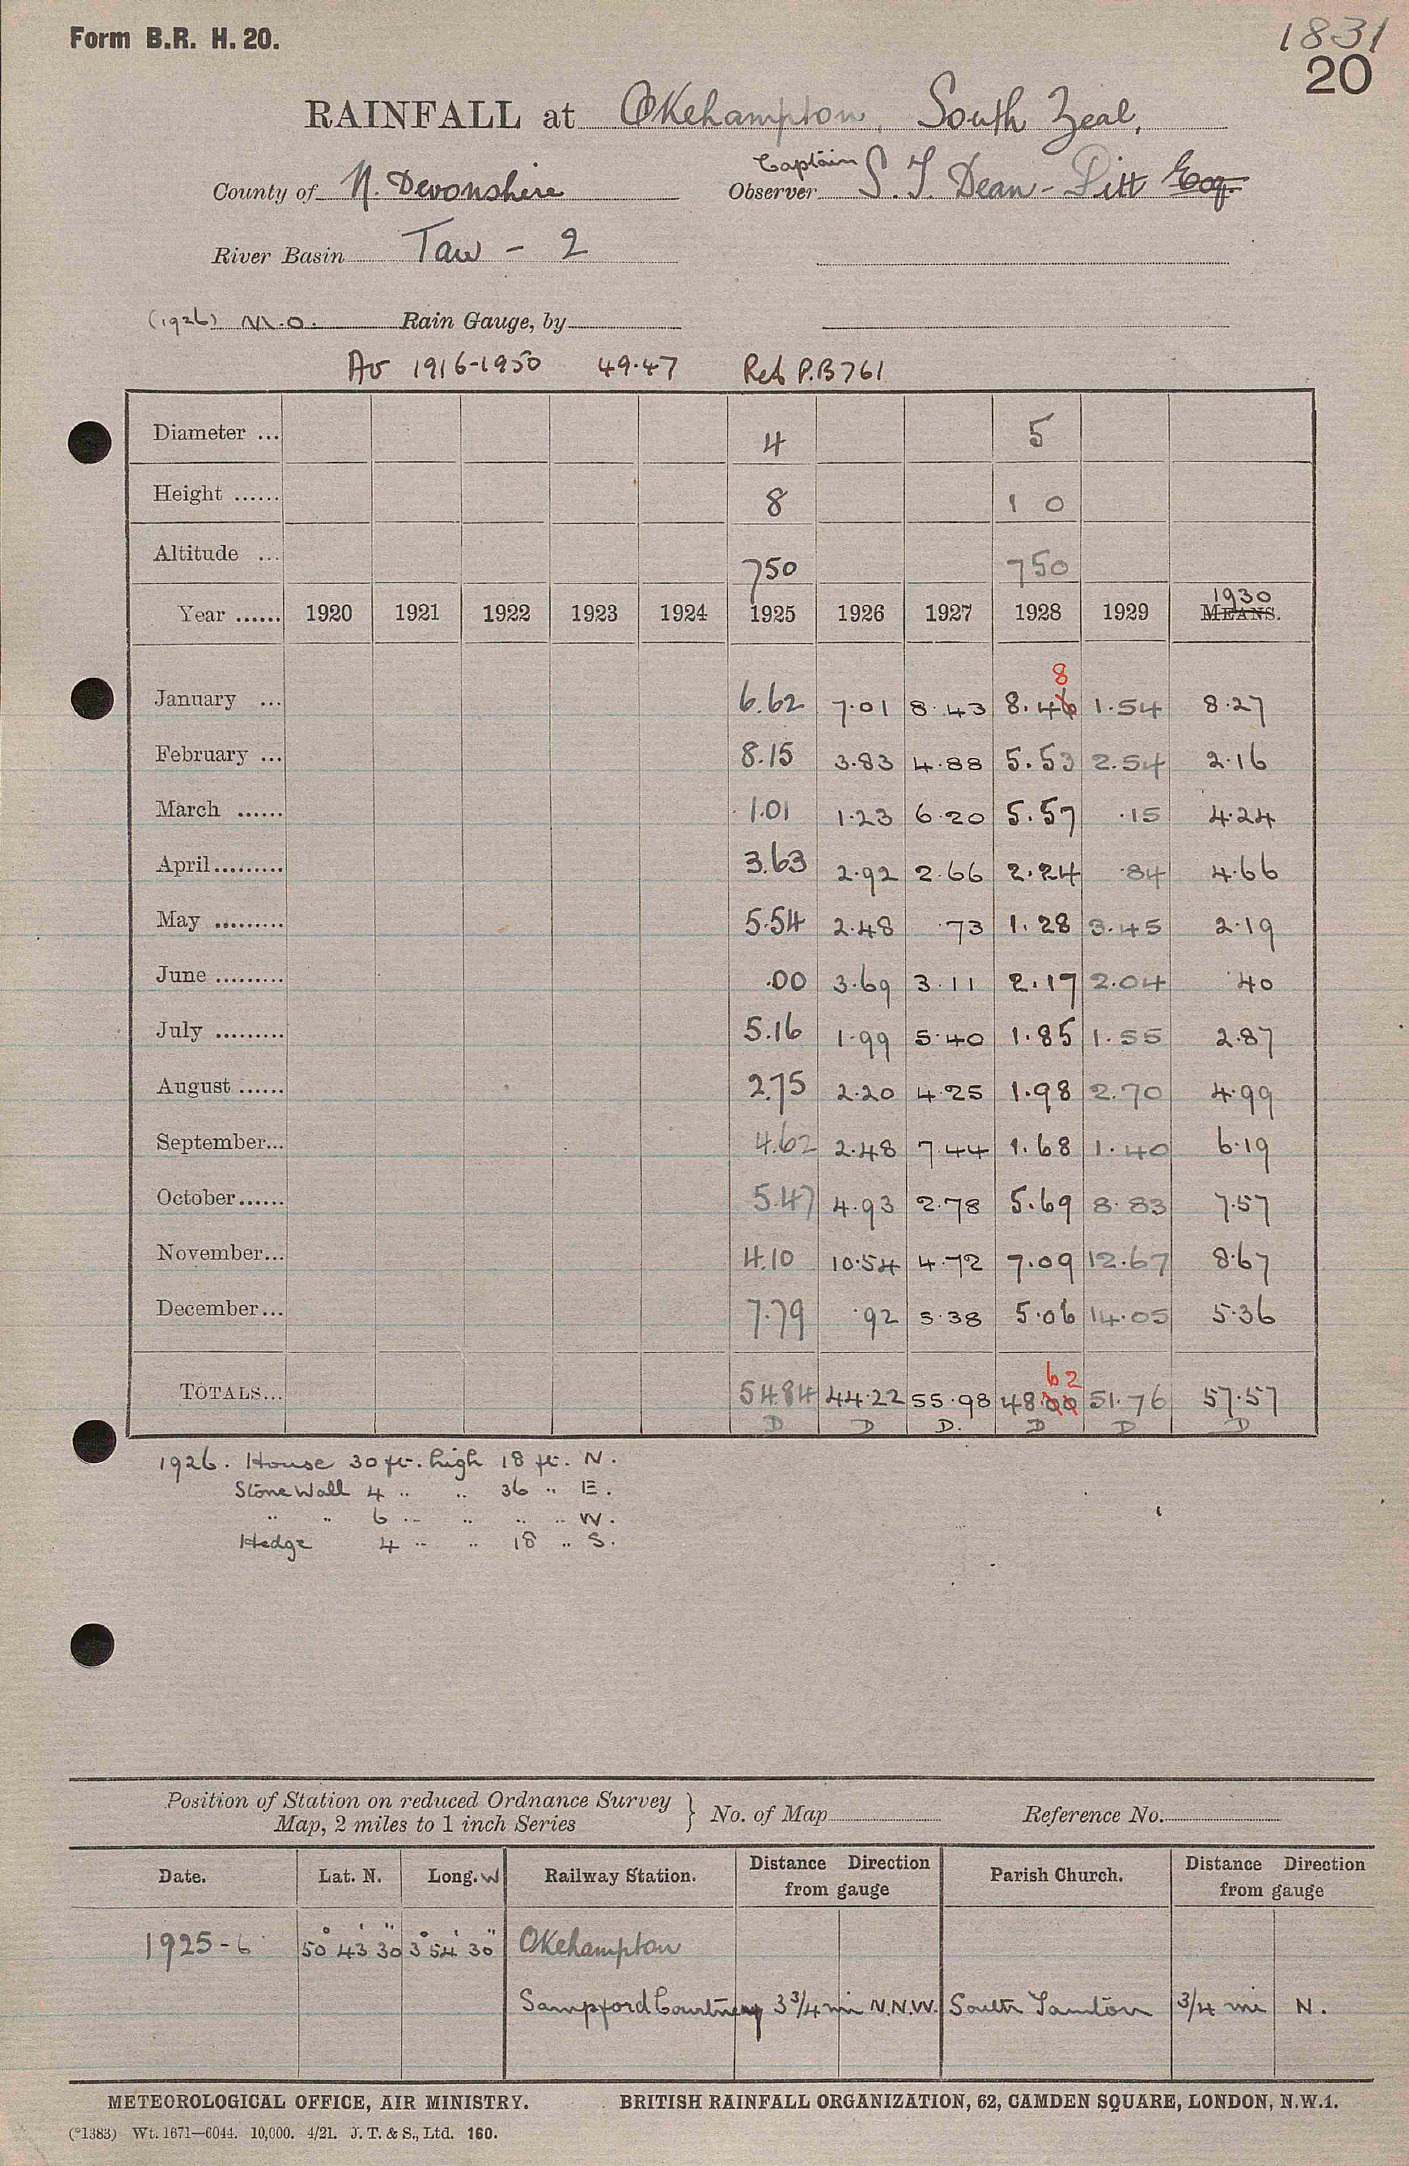 Form B.R. H. 20.
1831
20
RAINFALL at Okehampton, South Zeal.
County of N. Devonshire Observer Captain S. T. Dean-Pitt Esq.
River Basin Taw - 2
(1926) M.O. Rain Gauge, by
Av 1916-1950 49.47 Ref P.B761
Diameter ... 4 5
Height ...... 8 10
Altitude ... 750 750
Year ...... 1920 1921 1922 1923 1924 1925 1926 1927 1928 1929 MEANS. 1930
8
January ... 6.62 7.01 8.43 8.46 1.54 8.27
February ... 8.15 3.83 4.88 5.53 2.54 2.16
March ...... 1.01 1.23 6.20 5.57 .15 4.24
April ......... 3.63 2.92 2.66 2.24 .84 4.66
May ......... 5.54 2.48 .73 1.28 3.45 2.19
June ......... .00 3.69 3.11 2.17 2.04 .40
July ......... 5.16 1.99 5.40 1.85 1.55 2.87
August ...... 2.75 2.20 4.25 1.98 2.70 4.99
September... 4.62 2.48 7.44 1.68 1.40 6.19
October...... 5.47 4.93 2.78 5.69 8.83 7.57
November... 4.10 10.54 4.72 7.09 12.67 8.67
December... 7.79 .92 5.38 5.06 14.05 5.36
62
TOTALS... 54.84 44.22 55.98 48.00 51.76 57.57
D D D. D D D
1926. House 30 ft. high 18 ft. N.
Stone Wall 4 " " 36 " E.
" " 6 " " " " W.
Hedge 4 " " 18 " S.
Position of Station on reduced Ordnance Survey
Map, 2 miles to 1 inch Series } No. of Map Reference No.
Date. Lat. N. Long. W Railway Station. Distance Direction from gauge Parish Church. Distance Direction from gauge
1925-6 50° 43' 30" 3° 54' 30" Okehampton
Sampford Courtney 3 3/4 mi N.N.W. South Tawton 3/4 mi N.
METEOROLOGICAL OFFICE, AIR MINISTRY. BRITISH RAINFALL ORGANIZATION, 62, CAMDEN SQUARE, LONDON, N.W.1.
(*1383) Wt. 1671—6044. 10,000. 4/21. J. T. & S., Ltd. 160.